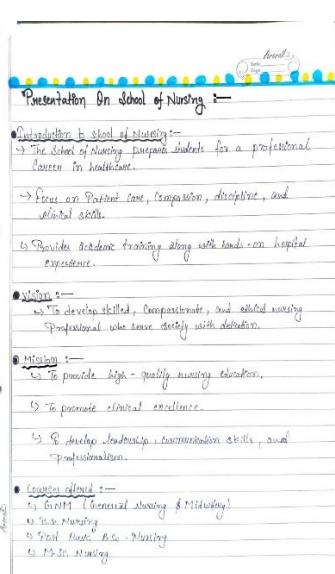 Presentation On School of Nursing :-
• Introduction to skool of Nursing :-
→ The School of Nursing prepare students for a professional
Career in healthcare.
→ Focus on Patient Care, Compassion, discipline, and
clinical skills.
↳ Provides academic training along with hands-on hospital
experience.
• Vision :-
↳ To develop skilled, Compassionate, and ethical nursing
Professional who serve society with dedication.
• Mission :-
↳ To provide high-quality nursing education.
↳ To promote clinical excellence.
↳ To develop leadership, communication skills, and
Professionalism.
• Courses offered :-
↳ GNM (General Nursing & Midwifery)
↳ B.Sc Nursing
↳ Post Basic B.Sc. Nursing
↳ M.Sc. Nursing